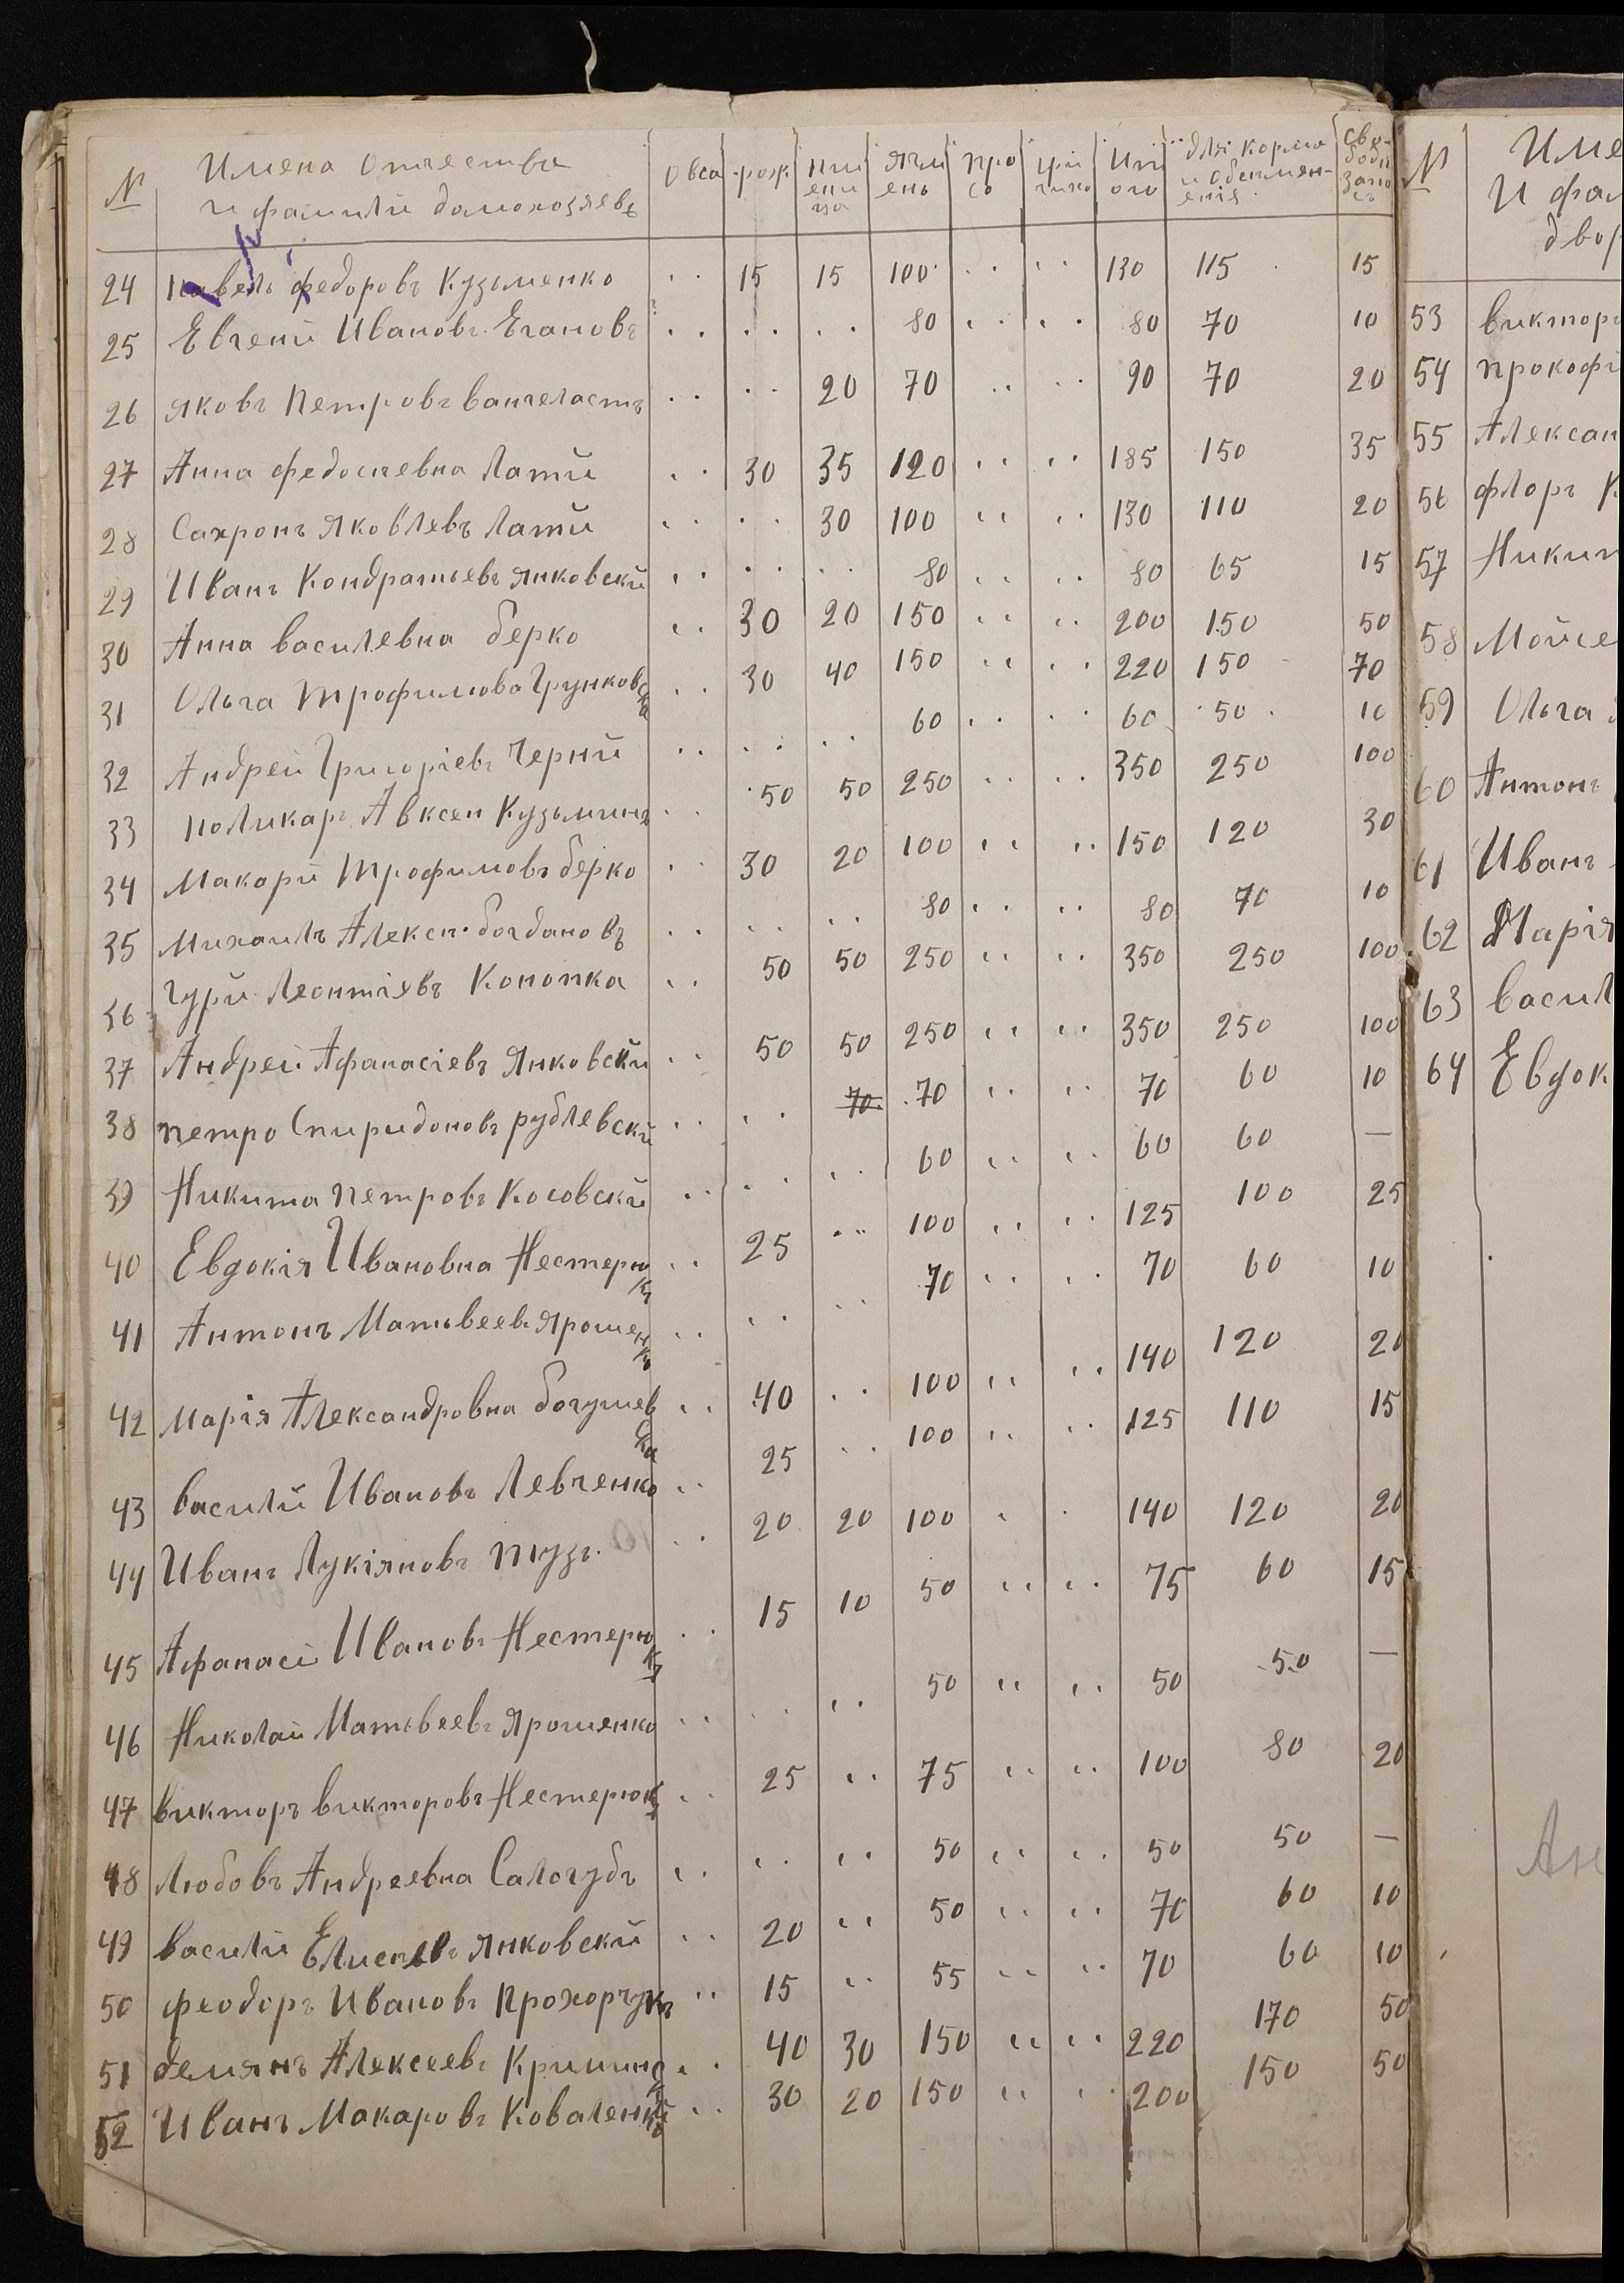 № Имена Отчества и фамилiи домохозяевъ Овса рож пшеница ячмень просо Итого для корма и обсеменения свободн запас
24 Павелъ федоровъ Кузьменко .. 15 15 100 .. .. 130 115 15
25 Евгенiй Ивановъ Егановъ .. .. .. 80 .. .. 80 70 10
26 яковъ Петровъ вангеластъ .. .. 20 70 .. .. 90 70 20
27 Анна федосiевна Латiй .. 30 35 120 .. .. 185 150 35
28 Сахронъ яковлевъ Латiй .. .. 30 100 .. .. 130 110 20
29 Иванъ Кондратьевъ янковскiй .. .. .. 80 .. .. 80 65 15
30 Анна василевна берко .. 30 20 150 .. .. 200 150 50
31 Ольга трофимова Грунковска .. 30 40 150 .. .. 220 150 70
32 Андрей Григорiевъ Чернiй .. .. .. 60 .. .. 60 50 10
33 поликарп Авксен Кузьминъ .. 50 50 250 .. .. 350 250 100
34 Макарiй трофимовъ берко .. 30 20 100 .. .. 150 120 30
35 михаилъ Алексн. богдановъ .. .. .. 80 .. .. 80 70 10
36 Гурiй Леонтiевъ Конопка .. 50 50 250 .. .. 350 250 100
37 Андрей Афанасiевъ янковскiй .. 50 50 250 .. .. 350 250 100
38 петро Спиридоновъ рублевскiй .. .. 70 70 .. .. 70 60 10
39 Никита петровъ Косовскiй .. .. .. 60 .. .. 60 60 —
40 Евдокiя Ивановна Нестерюкъ .. 25 .. 100 .. .. 125 100 25
41 Антонъ Матьвеевъ ярошенко .. .. .. 70 .. .. 70 60 10
42 марiя Александровна богушевска .. 40 .. 100 .. .. 140 120 20
43 василiй Ивановъ Левченко .. 25 .. 100 .. .. 125 110 15
44 Иванъ Лукiяновъ тузъ .. 20 20 100 . . 140 120 20
45 Афанасi Ивановъ Нестерюкъ .. 15 10 50 .. .. 75 60 15
46 Николай Матьвеевъ ярошенко .. .. .. 50 .. .. 50 50 —
47 викторъ викторовъ Нестерюкъ .. 25 .. 75 .. .. 100 80 20
48 Любовъ Андреевна Салогубъ .. .. .. 50 .. .. 50 50 —
49 василiй янковскiй .. 20 .. 50 .. .. 70 60 10
50 феодоръ Ивановъ Прохорчукъ .. 15 .. 55 .. .. 70 60 10
51 демянъ Алексеевъ .. 40 30 150 .. .. 220 170 50
52 Иванъ Макаровъ Коваленко .. 30 20 150 .. .. 200 150 50
№ Име
И фам
двор
53 викторъ
54 прокофi
55 Алексан
56 флоръ К
57 Никит
58 Мойсе
59 Ольга
60 Антонъ
61 Иванъ
62 Марiя
63 васил
64 Евдок
Ан